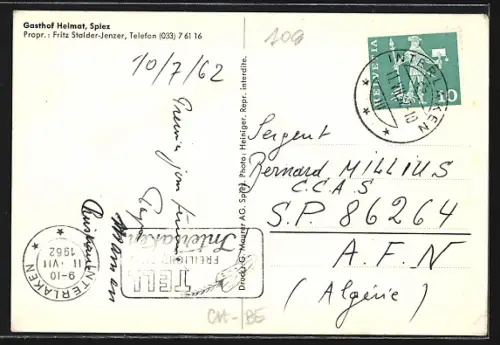 Gasthof Heimat, Spiez
Propr.: Fritz Stalder-Jenzer, Telefon (033) 7 61 16
109
10/7/62
Papa
Maman
HELVETIA
10
INTERLAKEN
INTERLAKEN
9-10
11·VII
1962
TELL
FREILICHT
Interlaken
Druck: G. Maurer AG. Spiez Photo: Heiniger. Repr. interdite.
Sergent
Bernard MILLIUS
C.C.A.S
S.P. 86264
A.F.N
(Algérie)
CH-BE